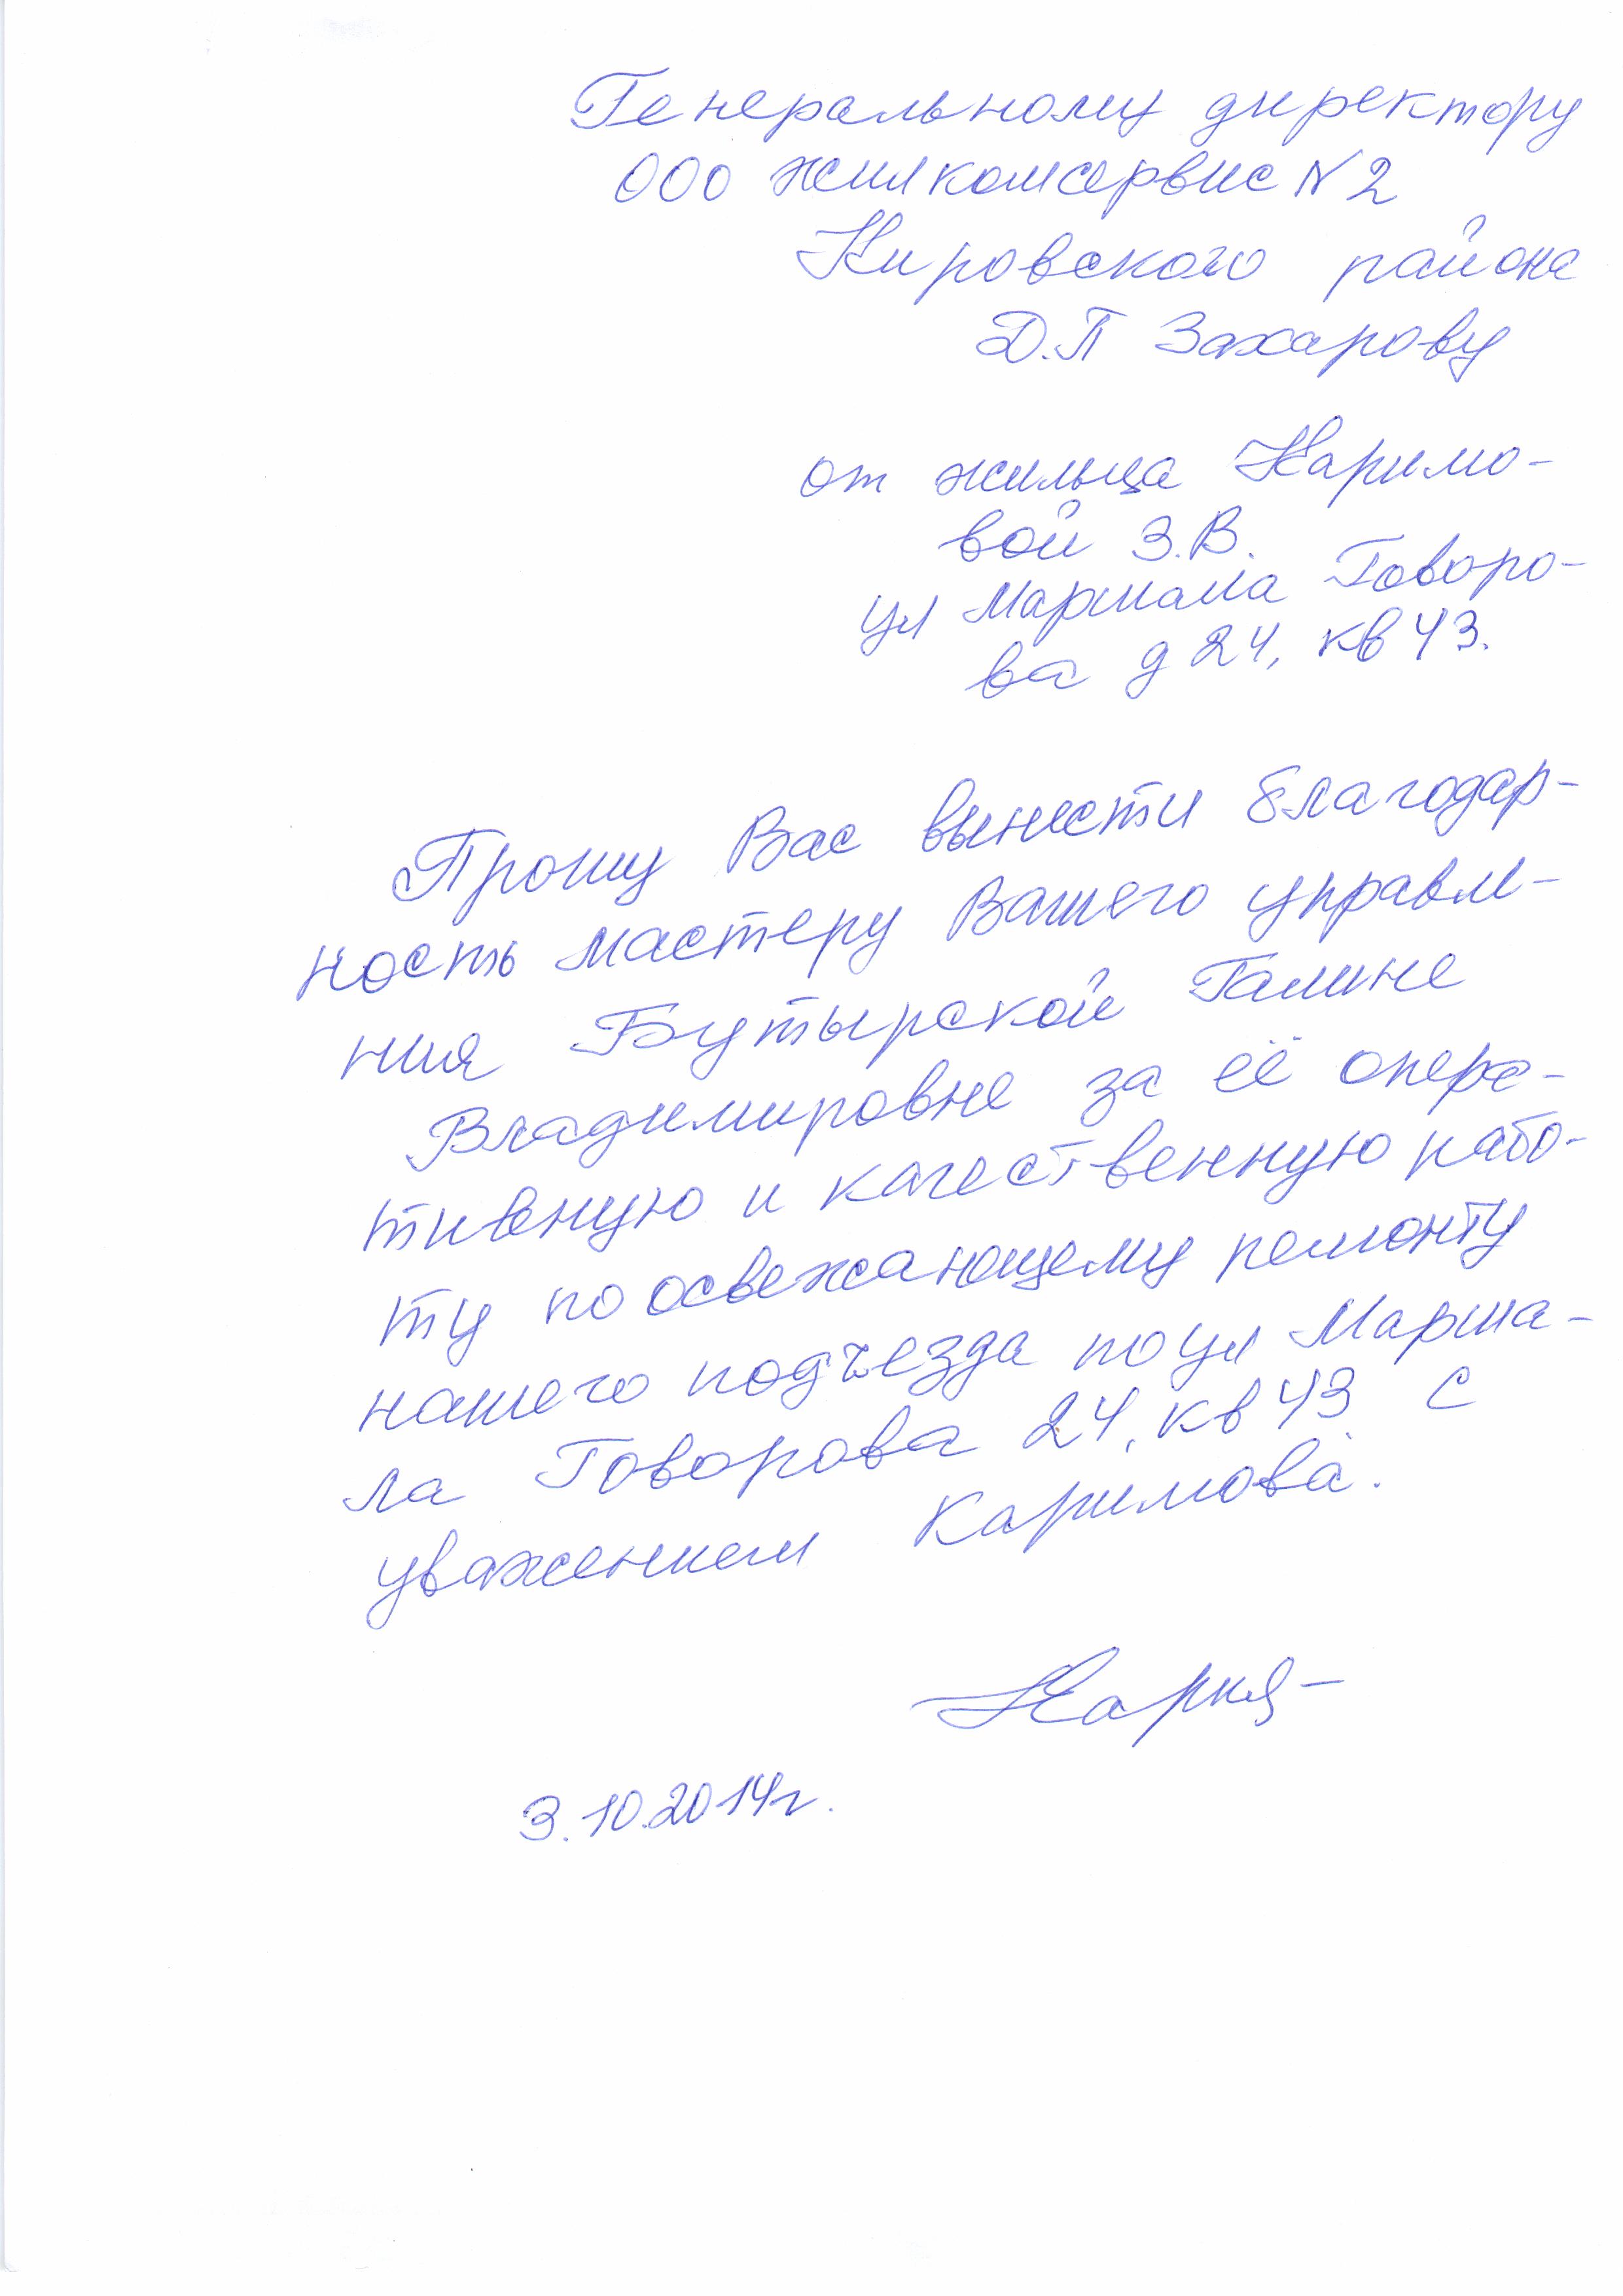 Генеральному директору
ООО жилкомсервис N 2
Кировского района
Д.П Захарову
от жильца Каримо-
вой З.В.
ул Маршала Говоро-
ва д 24, кв 43.
Прошу Вас вынести благодар-
ность мастеру Вашего управле-
ния Бутырской Галине
Владимировне за её опера-
тивную и качественную рабо-
ту по освежающему ремонту
нашего подъезда по ул Марша-
ла Говорова 24, кв 43 С
уважением Каримова.
3.10.2014г.